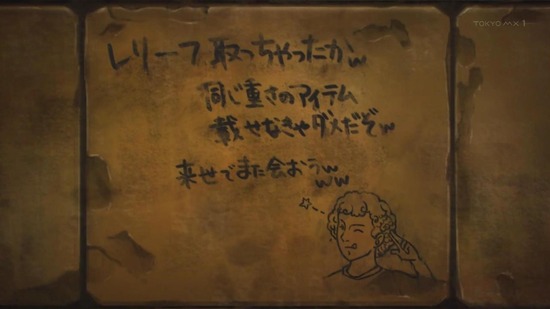 TOKYO MX1
レリーフ取っちゃったかw
同じ重さのアイテム
載せなきゃダメだぞw
来世でまた会おうw
ww